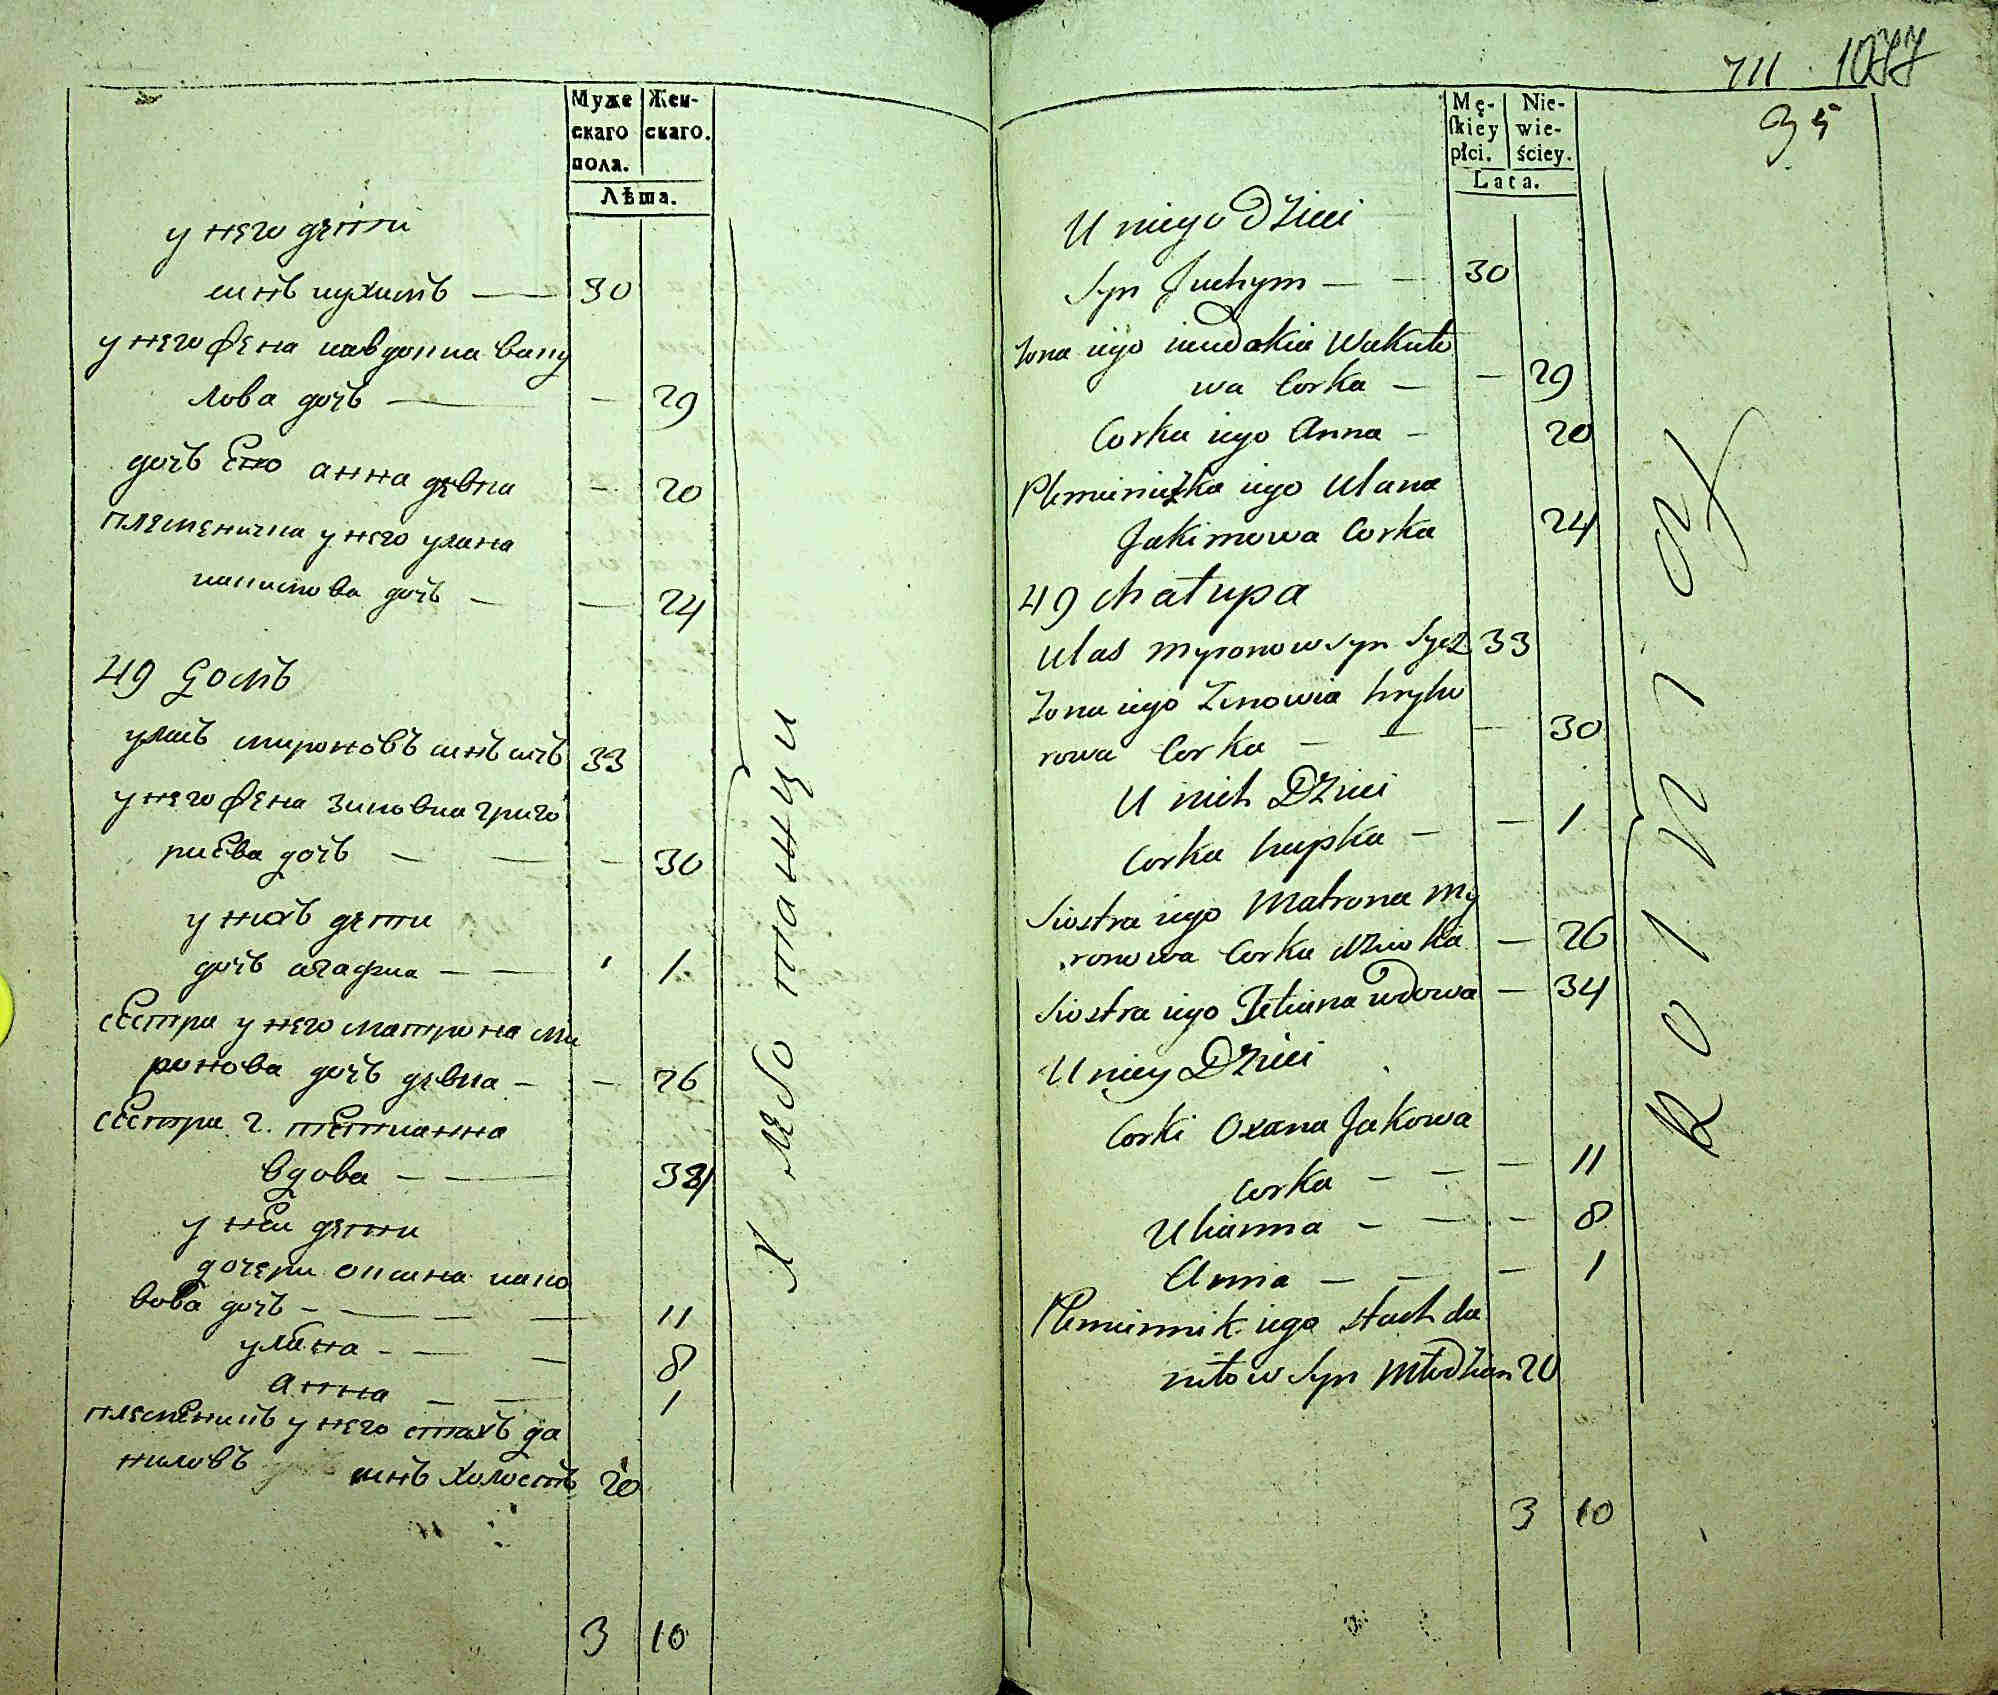 Муже
скаго
пола.
Жен-
скаго.
Лѣта.
у него дети
синъ иухимъ — 30
у него жена иавдокиа ваку
лова дочъ — — 29
дочъ Его анна девка — 20
племеничка у него улиана
иакимова дочъ — — 24
49 Домъ
уласъ мироновъ синъ 33
у него жена зиновиа григо
риева дочъ — — — 30
у нихъ дети
дочъ агафиа — — 1
сестра у него матрона ми
ронова дочъ девка — — 26
сестра 2. тетианна
вдова — — 34
у ней дети
дочери оксана иако
вова дочъ — — — 11
улиана — — — 8
анна — — 1
племеникъ у него стахъ да
ниловъ синъ холостъ 20
3 10
Хлебопашци
711 1077
35
Mę-
skiey
płci.
Nie-
wie-
ściey.
Lata.
U niego Dzieci
Syn Juchym — — 30
Zona iego iewdokia Wakulo
wa Corka — — 29
Corka iego Anna — 20
Plemieniczka iego Ulana
Jakimowa Corka 24
49 chałupa
Ulas Myronow Syn 33
Zona iego Zenowia hryho
rowa Corka — — — 30
U nich Dzieci
Corka hapka — — 1
Siostra iego Matrona My
ronowa Corka Dziwka — 26
Siostra iego Tetiana wdowa — 34
U niey Dzieci
Corki Oxana Jakowa
Corka — — — 11
Ulianna — — — 8
Anna — — — 1
Plemiennik iego Stach da
niłow Syn Młodzian 20
3 10
Rolnicy